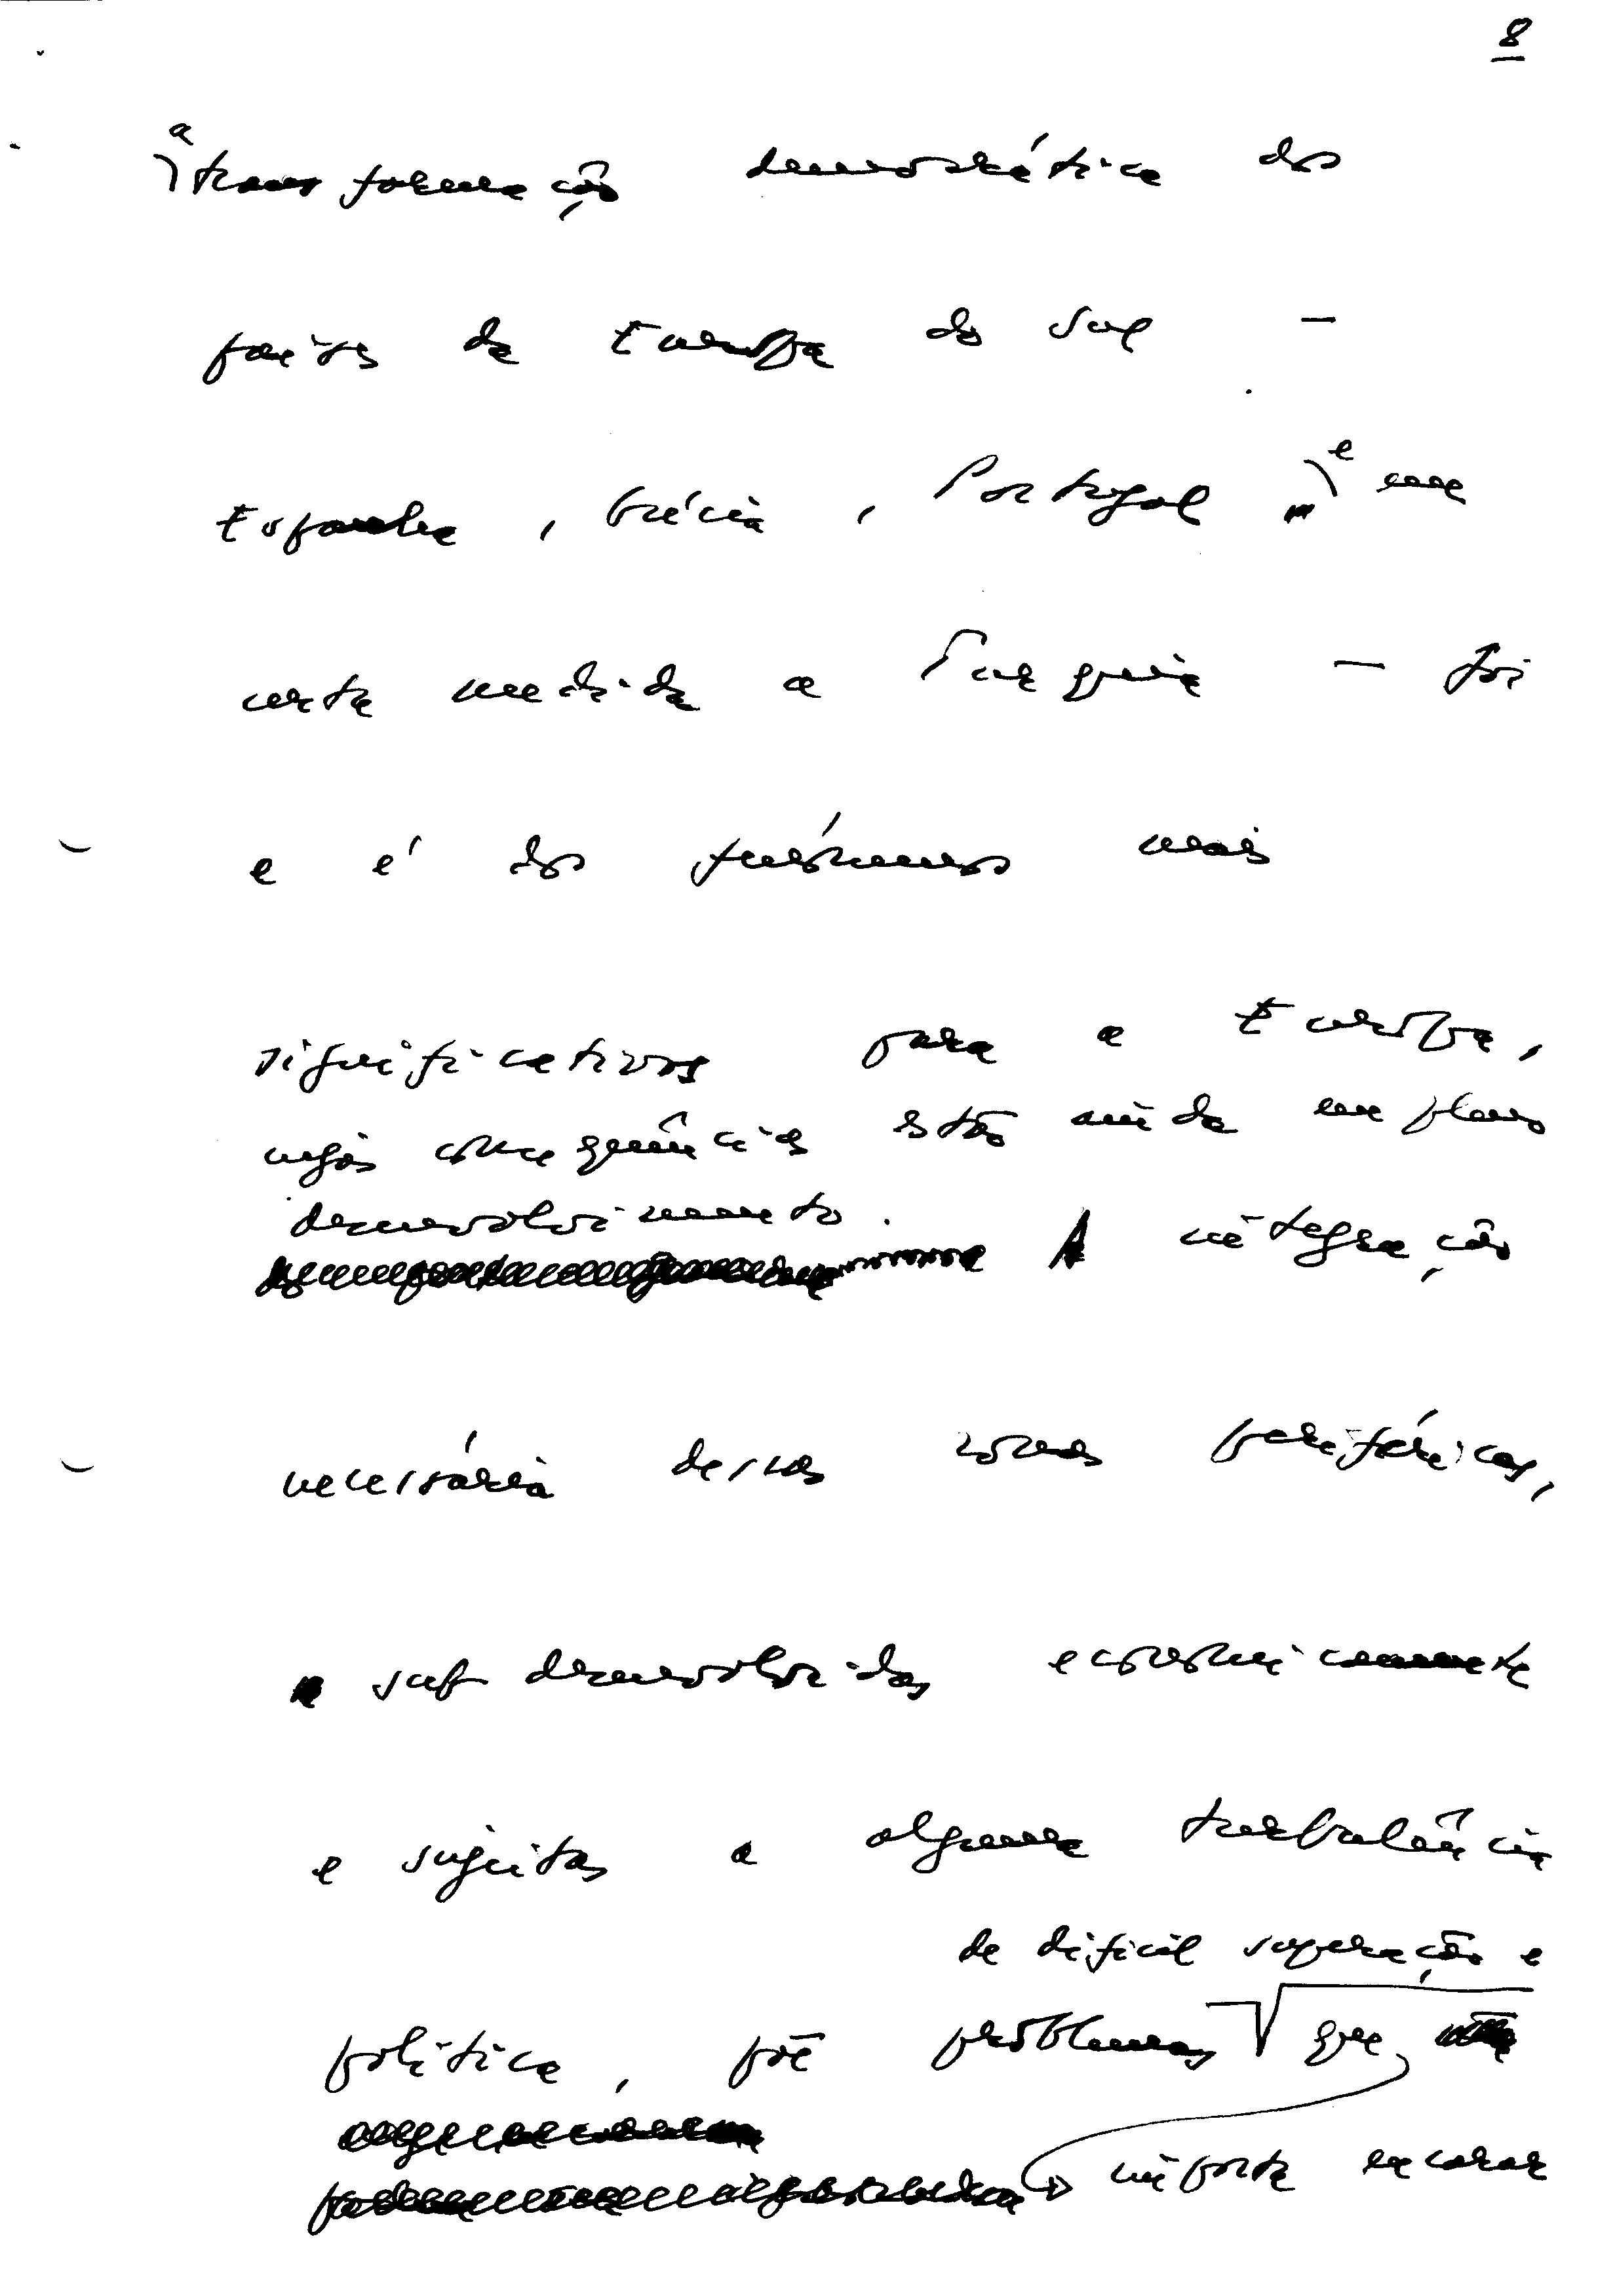 8
a transformação democrática dos
países da Europa do Sul —
Espanha, Grécia, Portugal e em
certa medida a Turquia — foi
e é dos fenómenos mais
significativos para a Europa,
cujas consequências estão ainda em pleno
desenvolvimento. A integração
necessária dessas zonas periféricas,
subdesenvolvidas economicamente
e sujeitas a alguma turbulência
de difícil superação e
política, põe problemas que
importa encarar